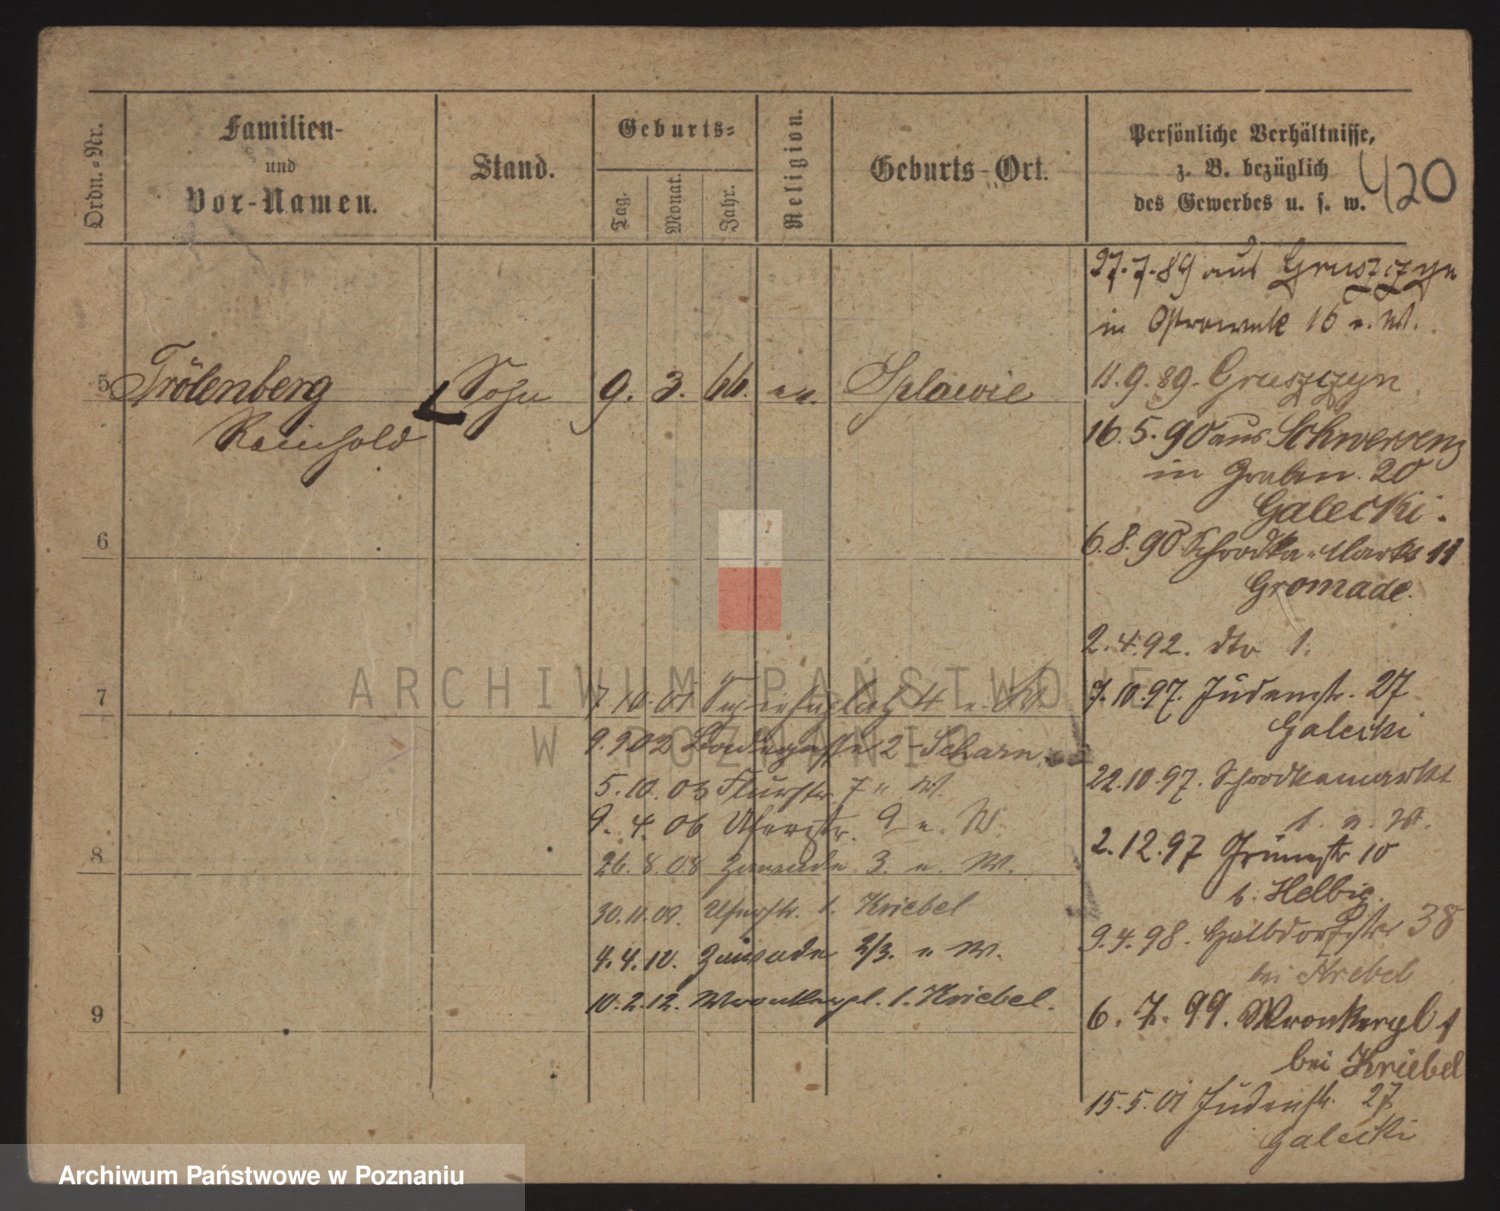 Ordn.-Nr.
Familien-
und
Vor-Namen.
Stand.
Geburts-
Tag.
Monat.
Jahr.
Religion.
Geburts-Ort.
Persönliche Verhältnisse,
z. B. bezüglich
des Gewerbes u. s. w.
420
27.7.89 aus Gruszczyn
in Ostrowek 16 n. W.
5 Trölenberg Sohn 9. 3. 66. ev. Splawie
Reinhold
11.9.89. Gruszczyn
16.5.90 aus Schwersenz
in Graben 20
Galecki.
6
6.8.90 Schrodka Markt 11
Gromade.
2.4.92. dto 1.
7
7.10.97. Judenstr. 27
Galecki
22.10.97. Schrodkamarkt
1. n. W.
2.12.97 Grünstr 10
b. Helbig.
9.4.98. Halbdorfstr 38
bei Krebel
6.7.99. Wronkerpl 1
bei Kriebel
15.5.01 Judenstr. 27
Galecki
7.10.01 4 n. W
9.9.02 2 Scharn
5.10.03 Flurstr. 7 n. W.
8
9.4.06 Uferstr. 9 n. W.
26.8.08 Zawade 3. n. W.
30.11.09. Uferstr. 1. Kriebel
4.4.10. Zawade 2/3. n. W.
9
10.2.12. Wronkerpl. 1. Kriebel.
ARCHIWUM PAŃSTWOWE
W POZNANIU
Archiwum Państwowe w Poznaniu